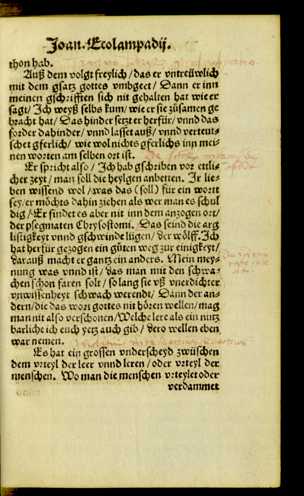 Joan. Ecolampadij.
thon hab.
Auß dem volgt freylich / das er vntreüwlich
mit dem gsatz gottes vmbgeet / Dann er inn
meinen gschrifften sich nit gehalten hat wie er
sagt / Ich weyß selbs kum / wie er sie zůsamen ge
bracht hat / Das hinder setzt er herfür / vnnd das
forder dahinder / vnnd lasset auß / vnnd verteut
schet gferlich / wie wol nichts gferlichs inn mei
nen worten am selben ort ist.
Er spricht also / Ich hab gschriben vor ettli
cher zeyt / man soll die heylgen anbetten. Ir lie
ben wissend wol / was das (soll) für ein wort
sey / er möchts dahin ziehen als wer man es schul
dig / Er findet es aber nit inn dem anzognen ort /
der psegmaten Chrysostomi. Das seind die arg
listigkeyt vnnd gschwinde lügen / der wölff. Ich
hat herfür gezogen ein gůten weg zur einigkeyt /
darauß macht er gantz ein anders. Mein mey-
nung was vnnd ist / das man mit den schwa-
chen schon faren solt / so lang sie vß vnerdichter
vnwissenheyt schwach werendt / Dann der an-
dern / die das wort gottes nit hören wellen / mag
man nit also verschonen / Welche lere als ein nutz
barlich ich euch yetz auch gib / dero wellen eben
war nemen.
Es hat ein grossen vnderscheyd zwüschen
dem vrteyl der leer vnnd leren / oder vrteyl der
menschen. Wo man die menschen vrteylet oder
verdammet